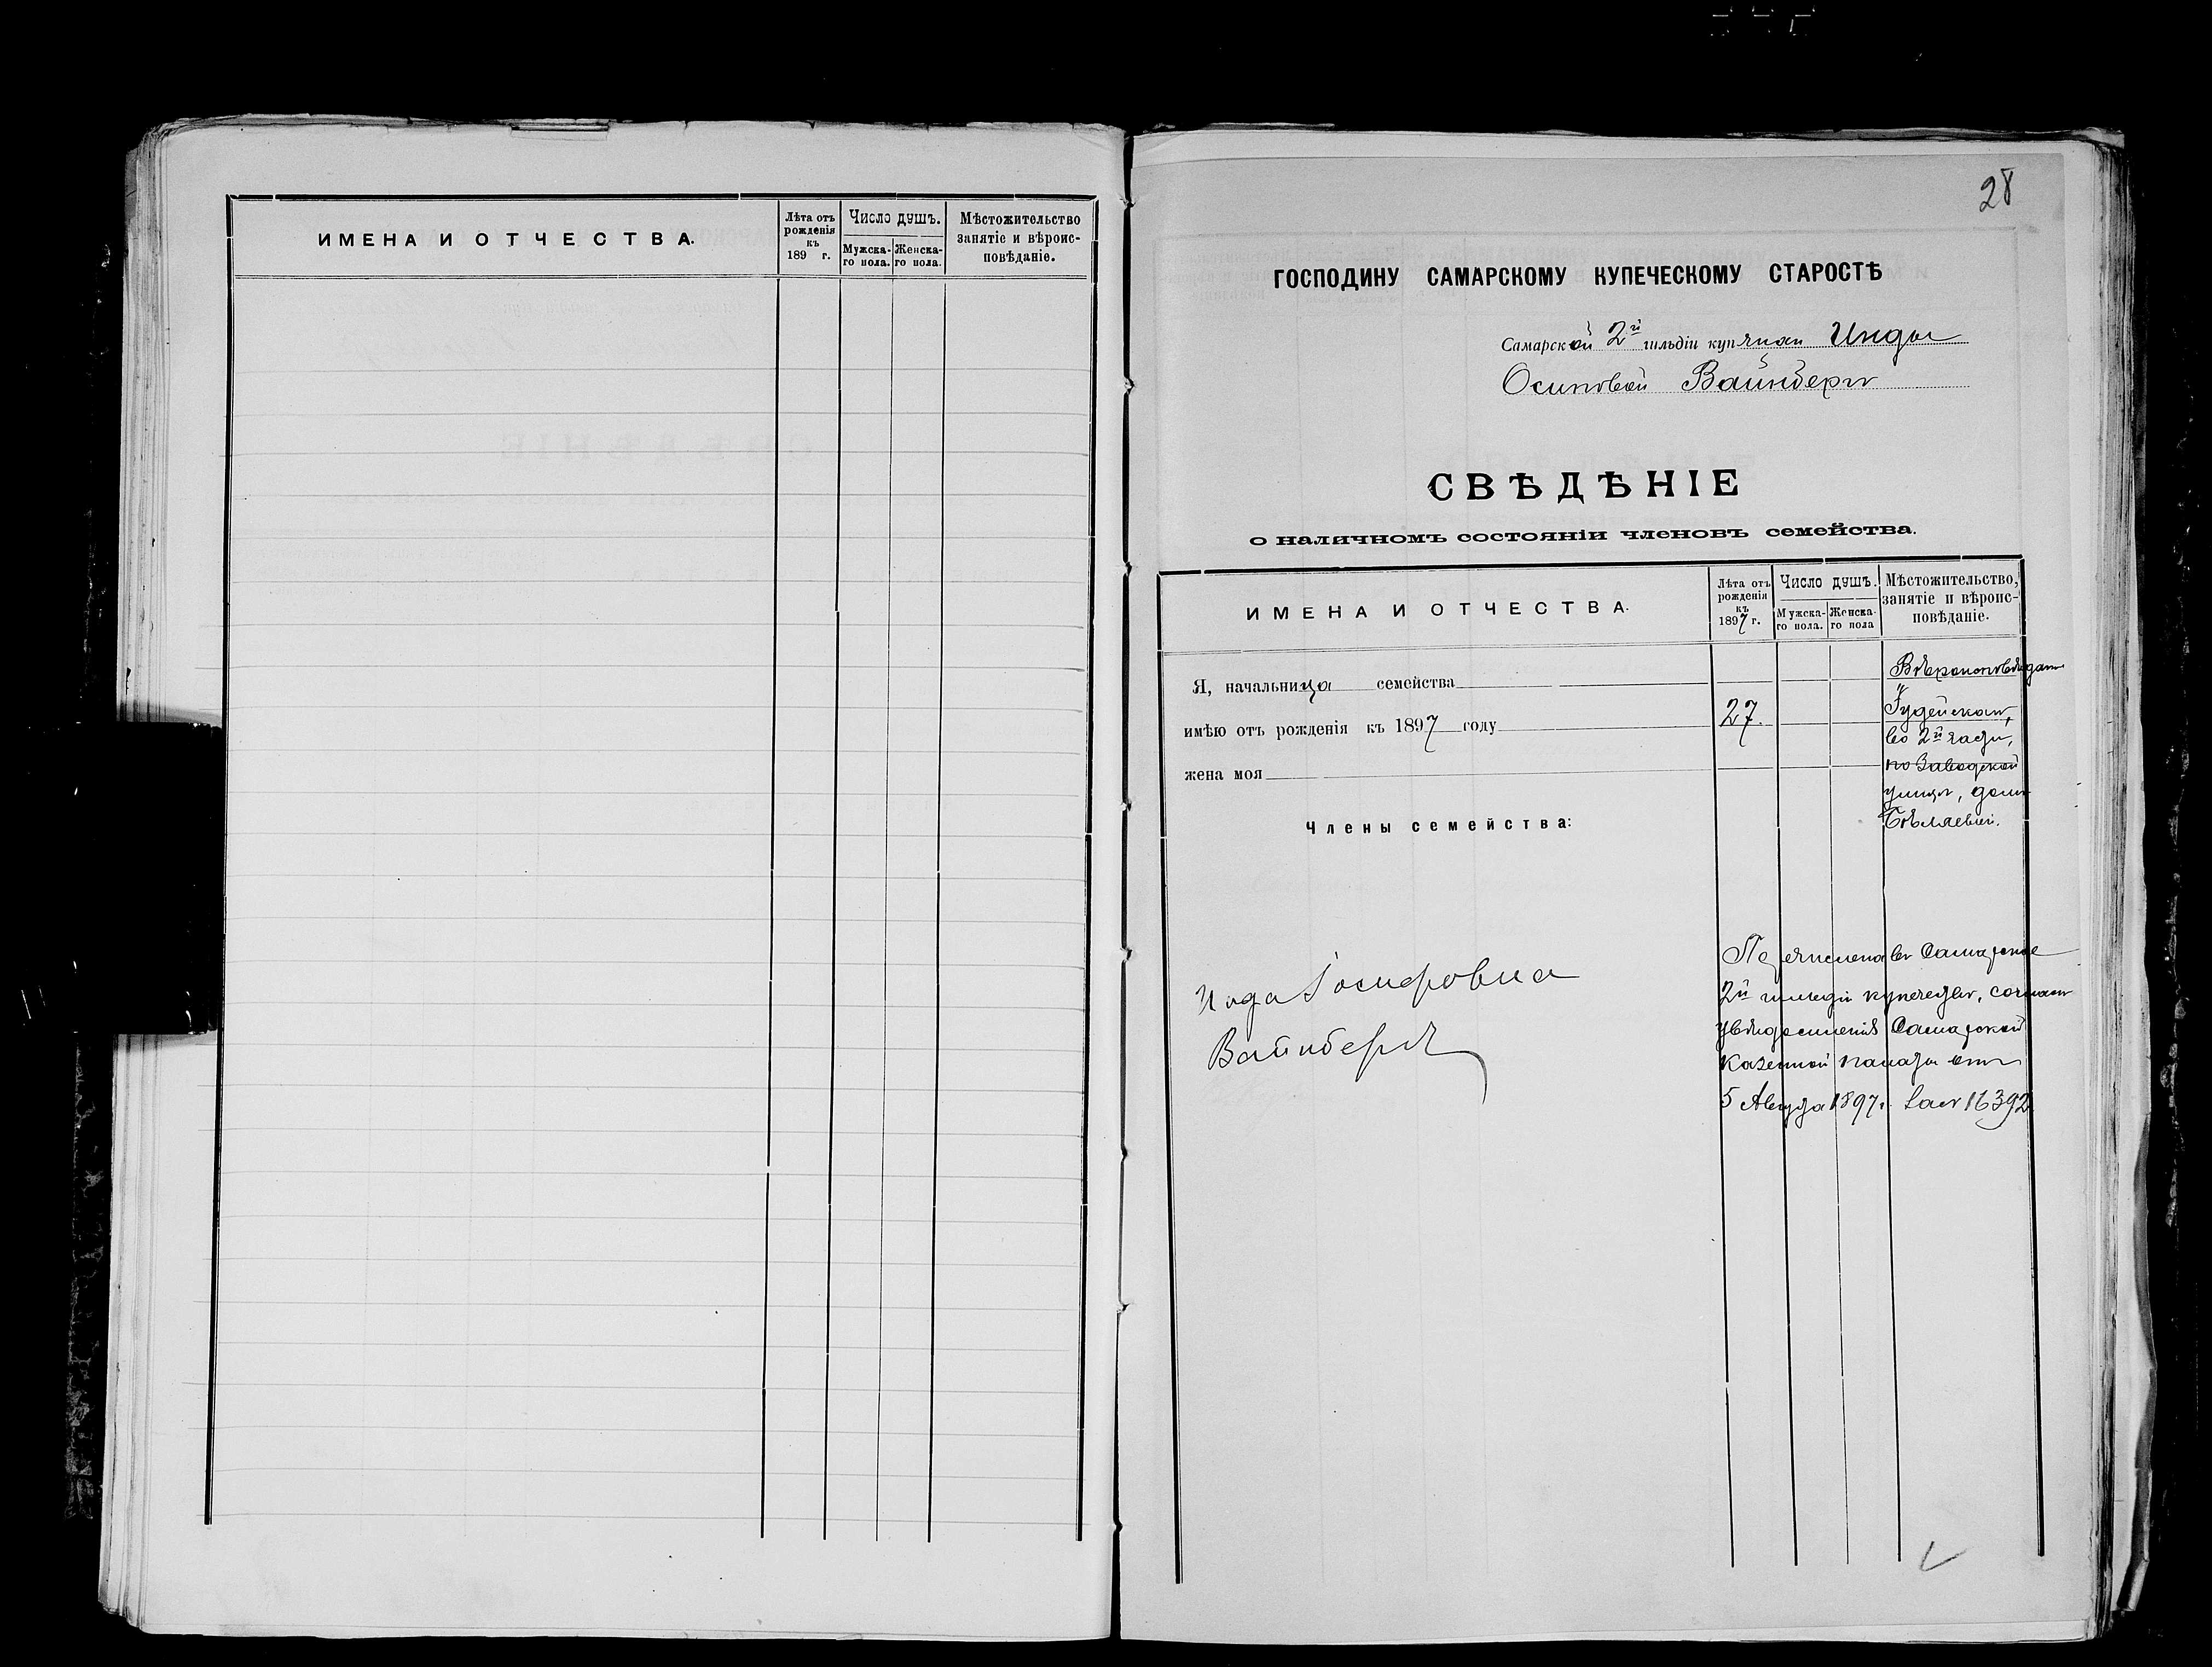 ИМЕНА И ОТЧЕСТВА.
Лѣта отъ рожденія къ 189 г.
Число душъ.
Мужска-го пола.
Женска-го пола.
Мѣстожительство
занятіе и вѣроис-
повѣданіе.
28
ГОСПОДИНУ САМАРСКОМУ КУПЕЧЕСКОМУ СТАРОСТѢ
Самарской 2й гильдіи купчихи Инды
Осиповой Вайнбергъ
СВѢДѢНІЕ
о наличномъ состояніи членовъ семейства.
ИМЕНА И ОТЧЕСТВА.
Лѣта отъ рожденія къ 1897 г.
Число душъ.
Мужска-го пола.
Женска-го пола
Мѣстожительство,
занятіе и вѣроис-
повѣданіе.
Я, начальница семейства
имѣю отъ рожденія къ 1897 году 27.
жена моя
Іудейскаго,
во 2й части,
по Заводской
улицѣ, домъ
Бѣляевой.
Члены семейства:
Инда Іосифовна
Вайнбергъ
Перечислена въ Самарское
2й гильдіи купечество, согласно
увѣдомленія Самарской
Казенной Палаты отъ
5 Августа 1897 г. за № 16392